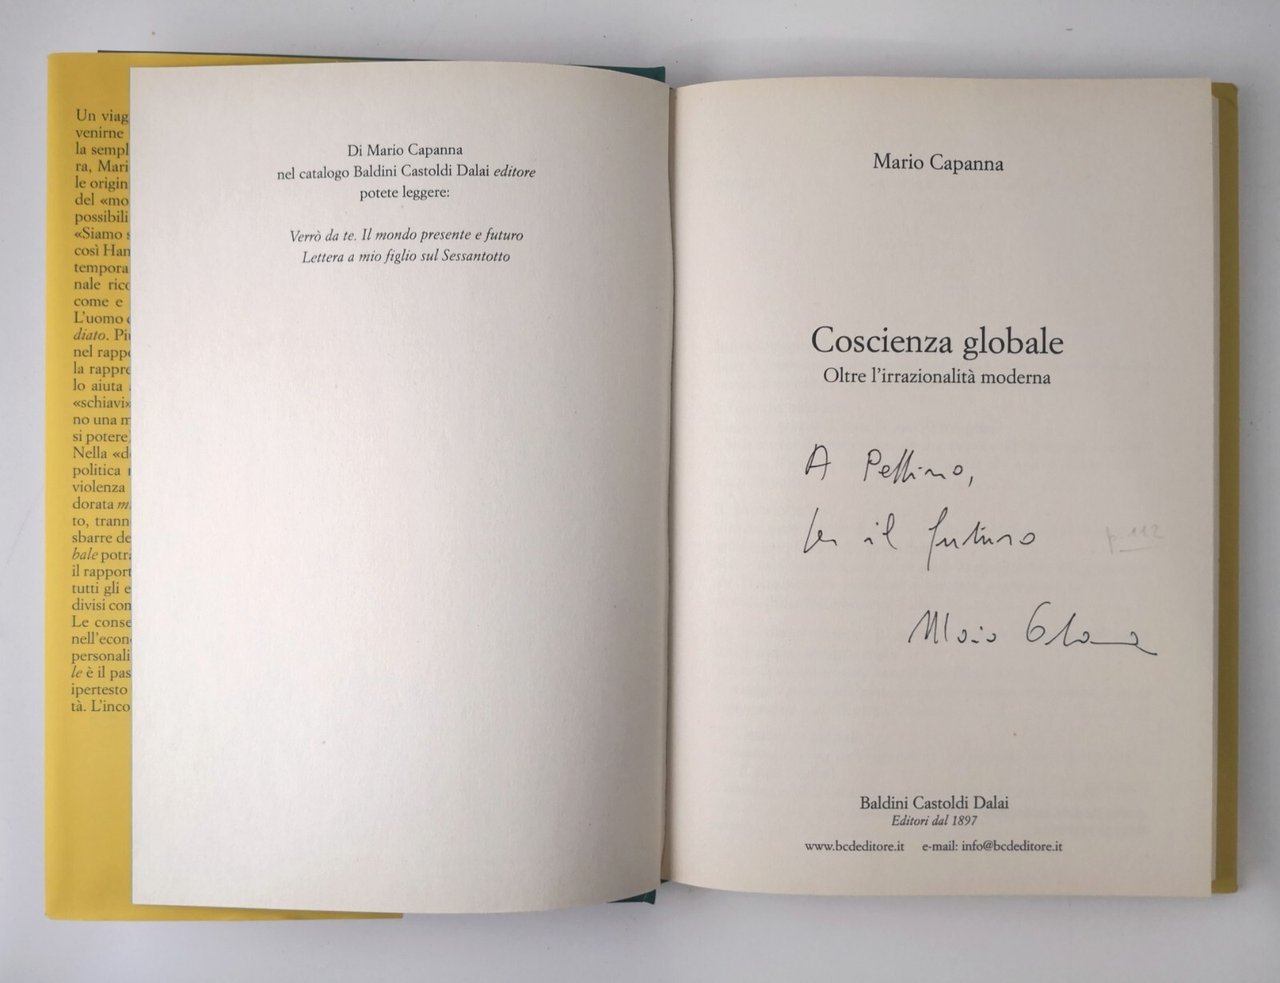 Un viag
venirne
la sempl
ra, Mari
le origin
del «mo
possibili
«Siamo s
così Han
tempora
nale rico
come e
L'uomo e
diato. Più
nel rappo
la rappre
lo aiuta
«schiavi»
no una m
si potere,
Nella «de
politica
violenza
dorata m
to, trann
sbarre de
bale potr
il rapport
tutti gli e
divisi con
Le conse
nell'econ
personali
le è il pas
ipertesto
tà. L'inco
Di Mario Capanna
nel catalogo Baldini Castoldi Dalai editore
potete leggere:
Verrò da te. Il mondo presente e futuro
Lettera a mio figlio sul Sessantotto
Mario Capanna
Coscienza globale
Oltre l'irrazionalità moderna
A Pellino,
per il futuro
p. 112
Mario Capanna
Baldini Castoldi Dalai
Editori dal 1897
www.bcdeditore.it e-mail: info@bcdeditore.it